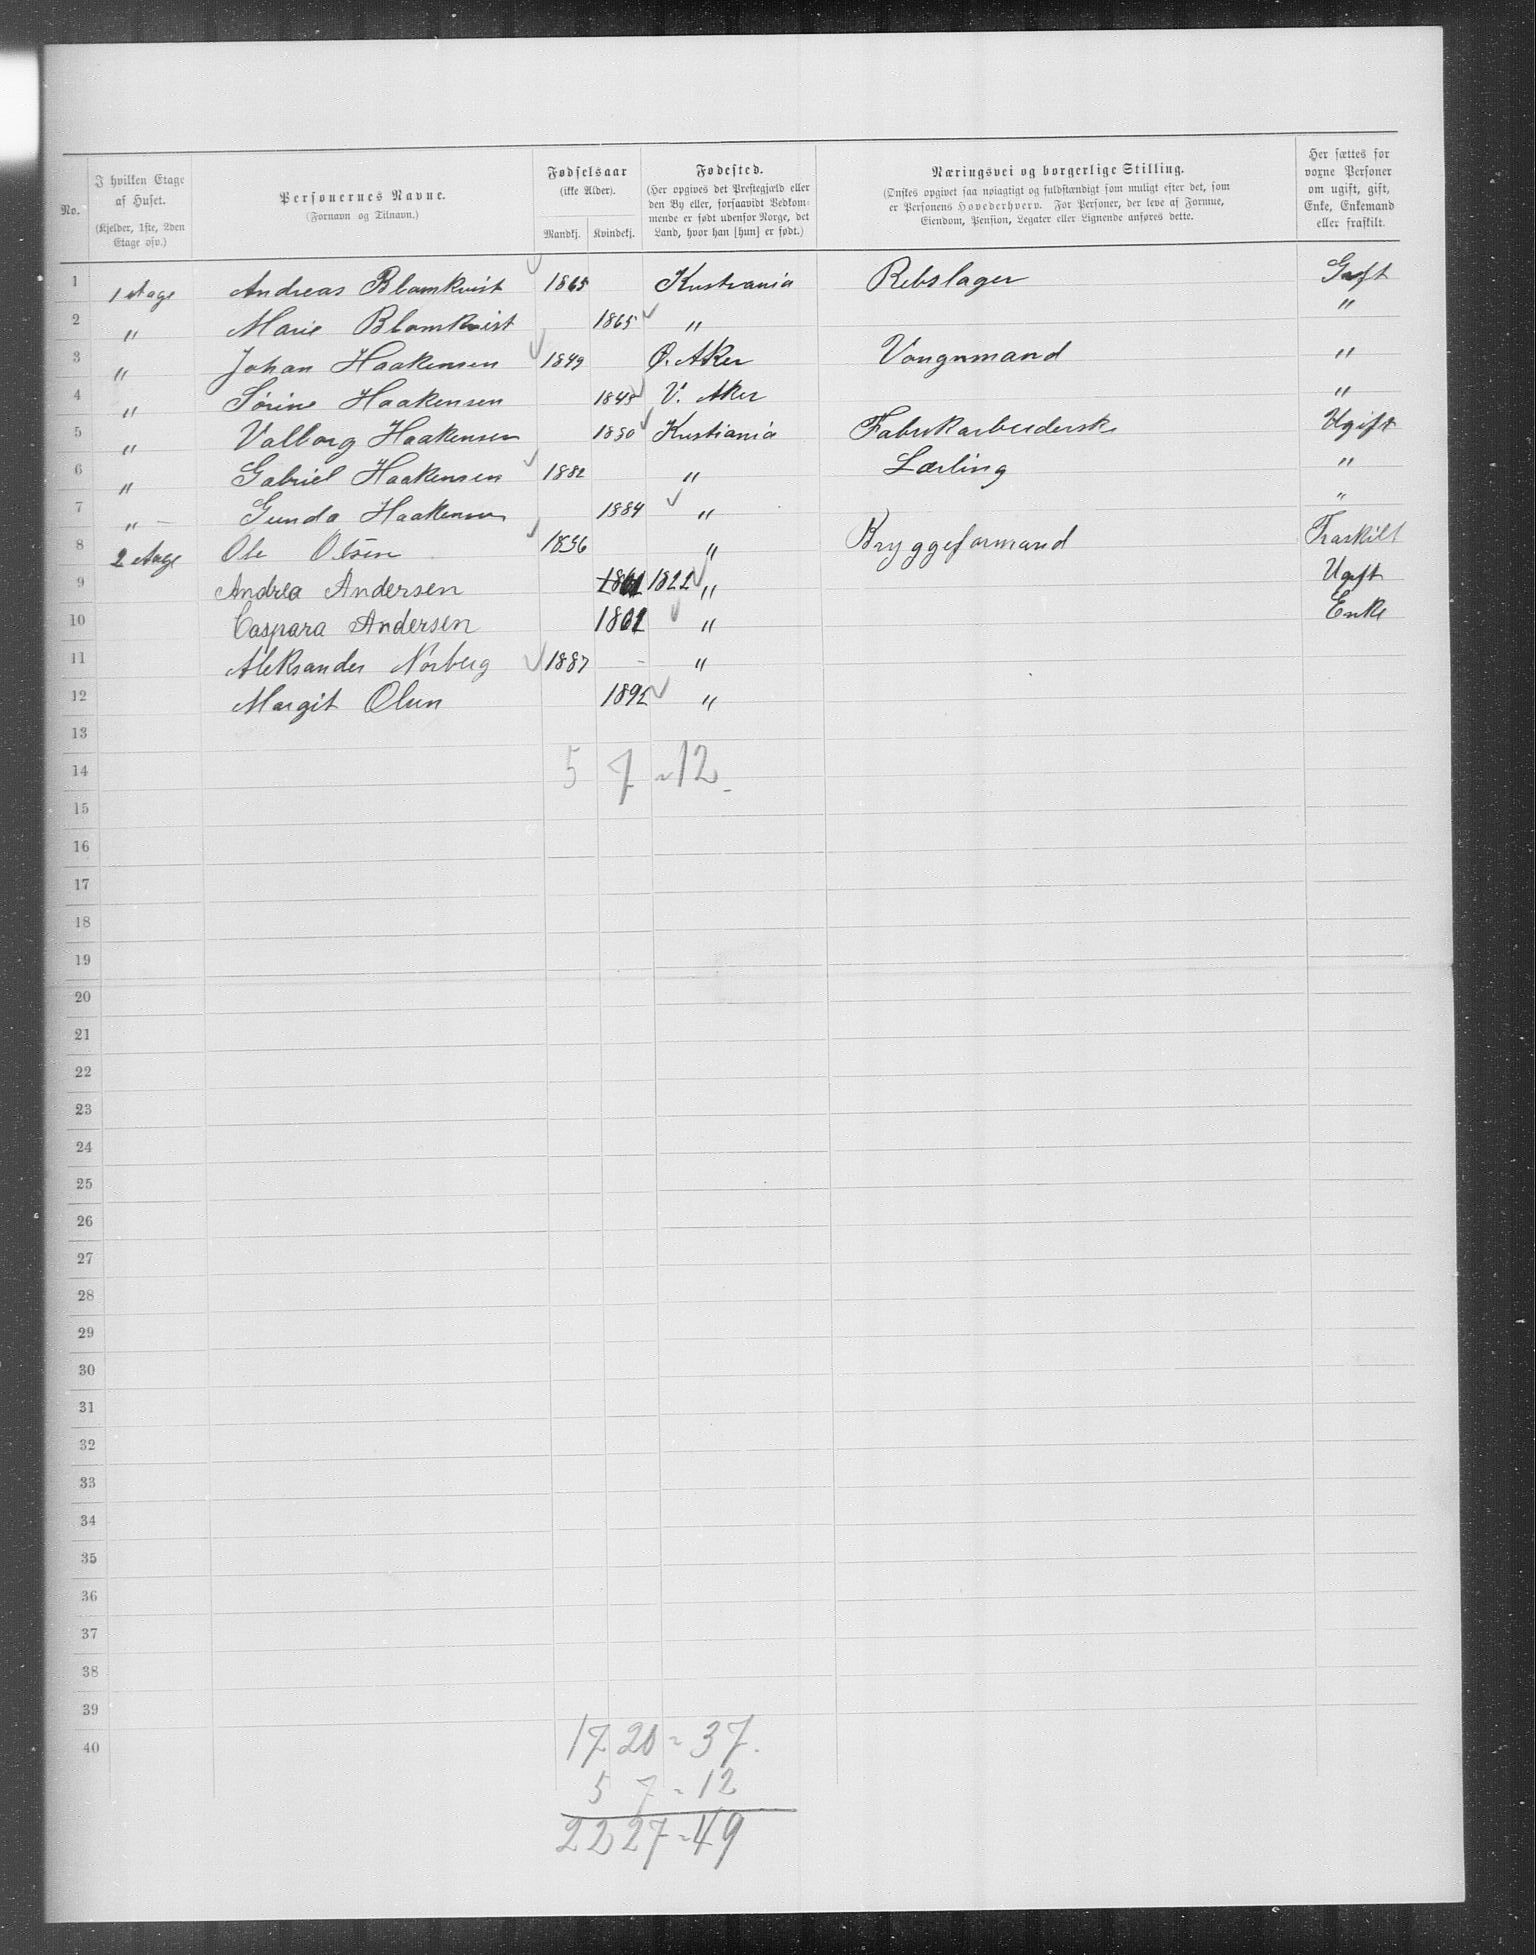 No.
I hvilken Etage af Huset. (Kjelder, 1ste, 2den Etage osv.)
Personernes Navne. (Fornavn og Tilnavn.)
Fødselsaar (ikke Alder). Mandkj. Kvindekj.
Fødested. (Her opgives det Prestegjæld eller den By eller, forsaavidt Vedkommende er født udenfor Norge, det Land, hvor han [hun] er født.)
Næringsvei og borgerlige Stilling. (Ønskes opgivet saa nøiagtigt og fuldstændigt som muligt efter det, som er Personens Hovederhverv. For Personer, der leve af Formue, Eiendom, Pension, Legater eller Lignende anføres dette.)
Her sættes for voxne Personer om ugift, gift, Enke, Enkemand eller fraskilt.
1 1 Etage Andreas Blomkvist 1865 Kristiania Rebslager Gift
2 " Marie Blomkvist 1865 " "
3 " Johan Haakensen 1849 Ø. Aker Vongnmand "
4 " Sørine Haakensen 1845 V. Aker "
5 " Valborg Haakensen Kristiania Fabrikarbeiderske Ugift
6 " Gabriel Haakensen 1882 " Lærling "
7 " Gunda Haakensen 1884 " "
8 2 Etage Ole Olsen 1856 " Bryggeformand Fraskilt
9 Andrea Andersen 1822 " Ugift
10 Caspara Andersen 1861 " Enke
11 Aleksander Norberg 1887 - "
12 Margit Olsen 1892 "
13
14 5 7 = 12
15
16
17
18
19
20
21
22
23
24
25
26
27
28
29
30
31
32
33
34
35
36
37
38
39
40 17 20 = 37.
5 7 = 12
22 27 = 49